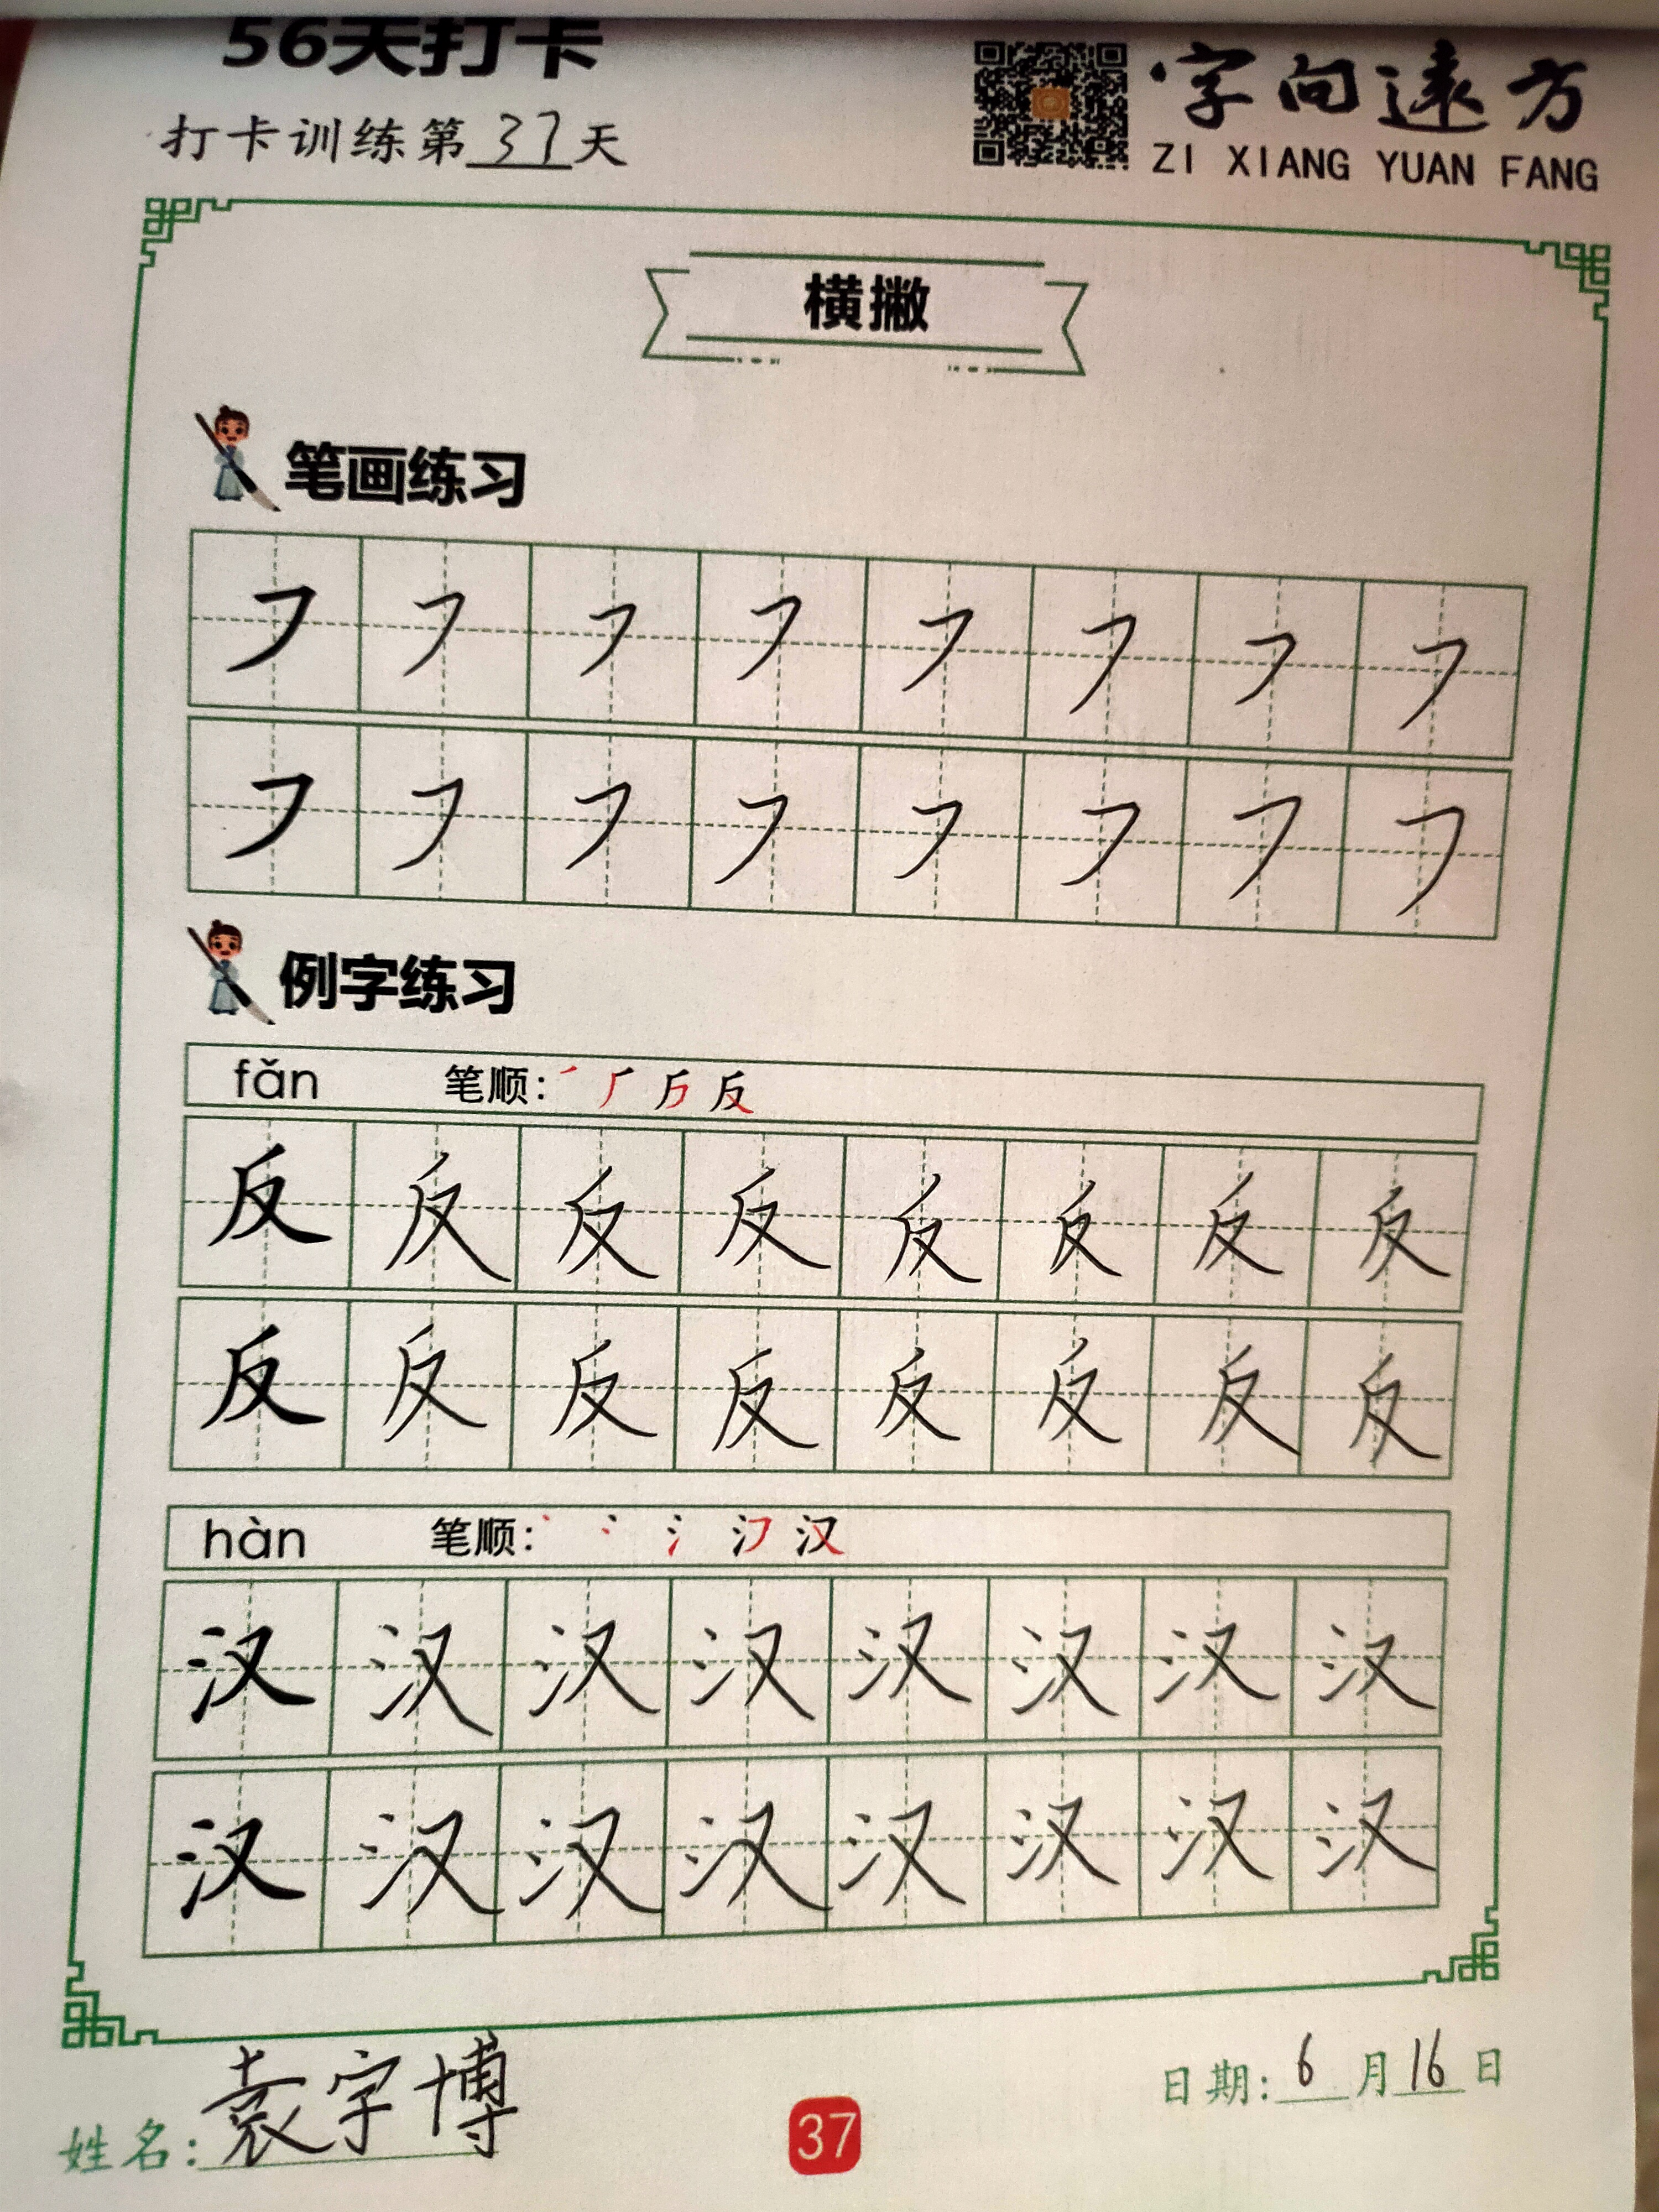 56天打卡
字向远方
打卡训练第37天
ZI XIANG YUAN FANG
横撇
笔画练习
㇇ ㇇ ㇇ ㇇ ㇇ ㇇ ㇇ ㇇
㇇ ㇇ ㇇ ㇇ ㇇ ㇇ ㇇ ㇇
例字练习
fǎn 笔顺: 反
反 反 反 反 反 反 反 反
反 反 反 反 反 反 反 反
hàn 笔顺: 汉
汉 汉 汉 汉 汉 汉 汉 汉
汉 汉 汉 汉 汉 汉 汉 汉
姓名: 袁宇博
37
日期: 6月16日